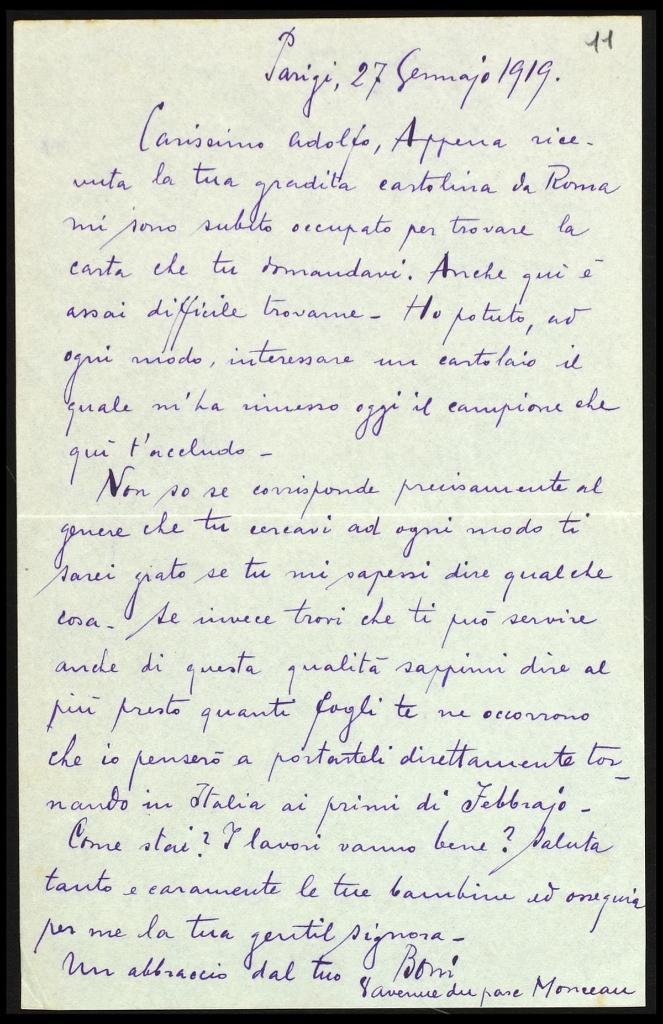 11
Parigi, 27 Gennajo 1919.
Carissimo Adolfo, Appena rice-
vuta la tua gradita cartolina da Roma
mi sono subito occupato per trovare la
carta che tu domandavi. Anche qui è
assai difficile trovarne - Ho potuto, ad
ogni modo, interessare un cartolaio il
quale m'ha rimesso oggi il campione che
qui t'accludo -
Non so se corrisponde precisamente al
genere che tu cercavi ad ogni modo ti
sarei grato se tu mi sapessi dire qualche
cosa - Se invece trovi che ti può servire
anche di questa qualità sappimi dire al
più presto quanti fogli te ne occorrono
che io penserò a portarteli direttamente tor-
nando in Italia ai primi di Febbrajo -
Come stai? I lavori vanno bene? Saluta
tanto e caramente le tue bambine ed ossequia
per me la tua gentil signora -
Un abbraccio dal tuo Boni
8 avenue du parc Monceau